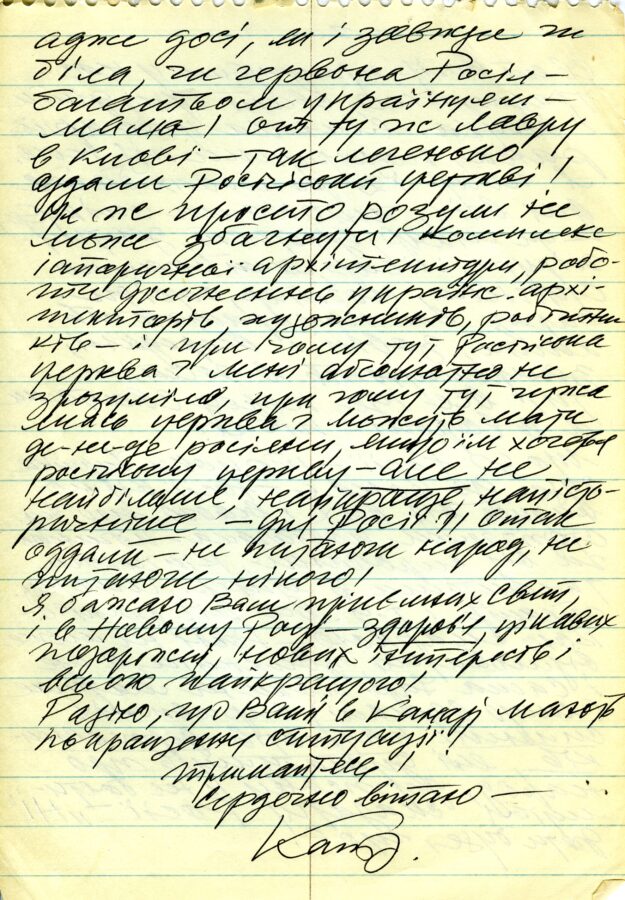 адже досі, як і завжди чи
біла, чи червона Росія —
багатьом українцям —
мама! От ту ж Лавру
в Києві — так легенько
оддали Російській церкві!
Це ж просто розум не
може збагнути! Комплекс
історичної архітектури, робо-
ти досягнень україн. архі-
текторів, художників, робітни
ків — і при чому тут Російська
церква? Мені абсолютно не
зрозуміло, при чому тут чужа
якась церква? Можуть мати
де-не-де росіяни, якщо їм хочеться
російську церкву — але не
найбільше, найкраще, найісто-
ричніше — для Росії!! Отак
оддали — не питаючи народ, не
питаючи нікого!
Я бажаю Вам приємних Свят,
і в Новому Році — здоров'я, цікавих
подорожей, нових інтересів і
всього найкращого!
Радію, що Ваші в Канаді мають
покращену ситуацію!
Тримайтесь!
Сердечно вітаю —